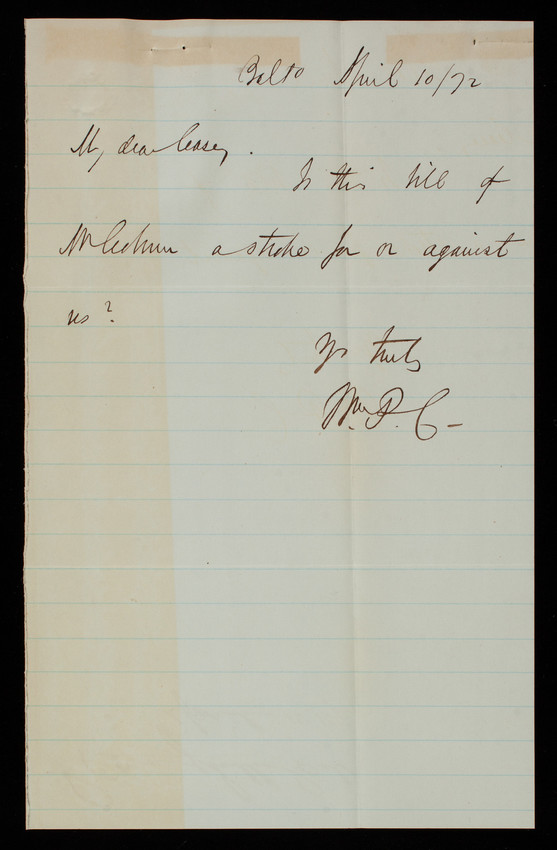 Balto April 10/72
My dear Casey.
Is this bill of
a stroke for or against
us?
Yrs truly
Wm. P. C—